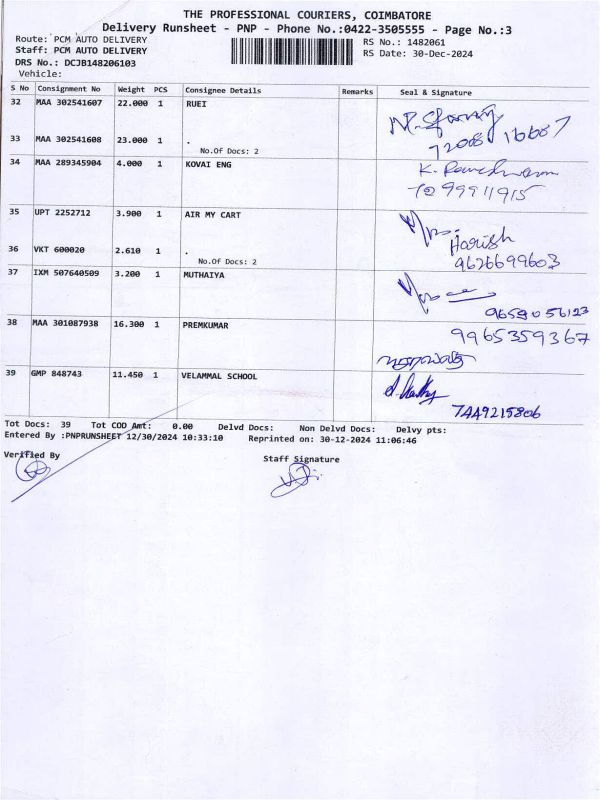 THE PROFESSIONAL COURIERS, COIMBATORE
Delivery Runsheet - PNP - Phone No.:0422-3505555 - Page No.:3
Route: PCM AUTO DELIVERY RS No.: 1482061
Staff: PCM AUTO DELIVERY RS Date: 30-Dec-2024
DRS No.: DCJB148206103
Vehicle:
S No Consignment No Weight PCS Consignee Details Remarks Seal & Signature
32 MAA 302541607 22.000 1 RUEI
33 MAA 302541608 23.000 1 .
No.Of Docs: 2
34 MAA 289345904 4.000 1 KOVAI ENG K. Rameshwaran
35 UPT 2252712 3.900 1 AIR MY CART
Harish
36 VKT 600020 2.610 1 .
No.Of Docs: 2 9626699603
37 IXM 507640509 3.200 1 MUTHAIYA
9659056123
38 MAA 301087938 16.300 1 PREMKUMAR 9965359367
39 GMP 848743 11.450 1 VELAMMAL SCHOOL
7449215806
Tot Docs: 39 Tot COD Amt: 0.00 Delvd Docs: Non Delvd Docs: Delvy pts:
Entered By :PNPRUNSHEET 12/30/2024 10:33:10 Reprinted on: 30-12-2024 11:06:46
Verified By Staff Signature